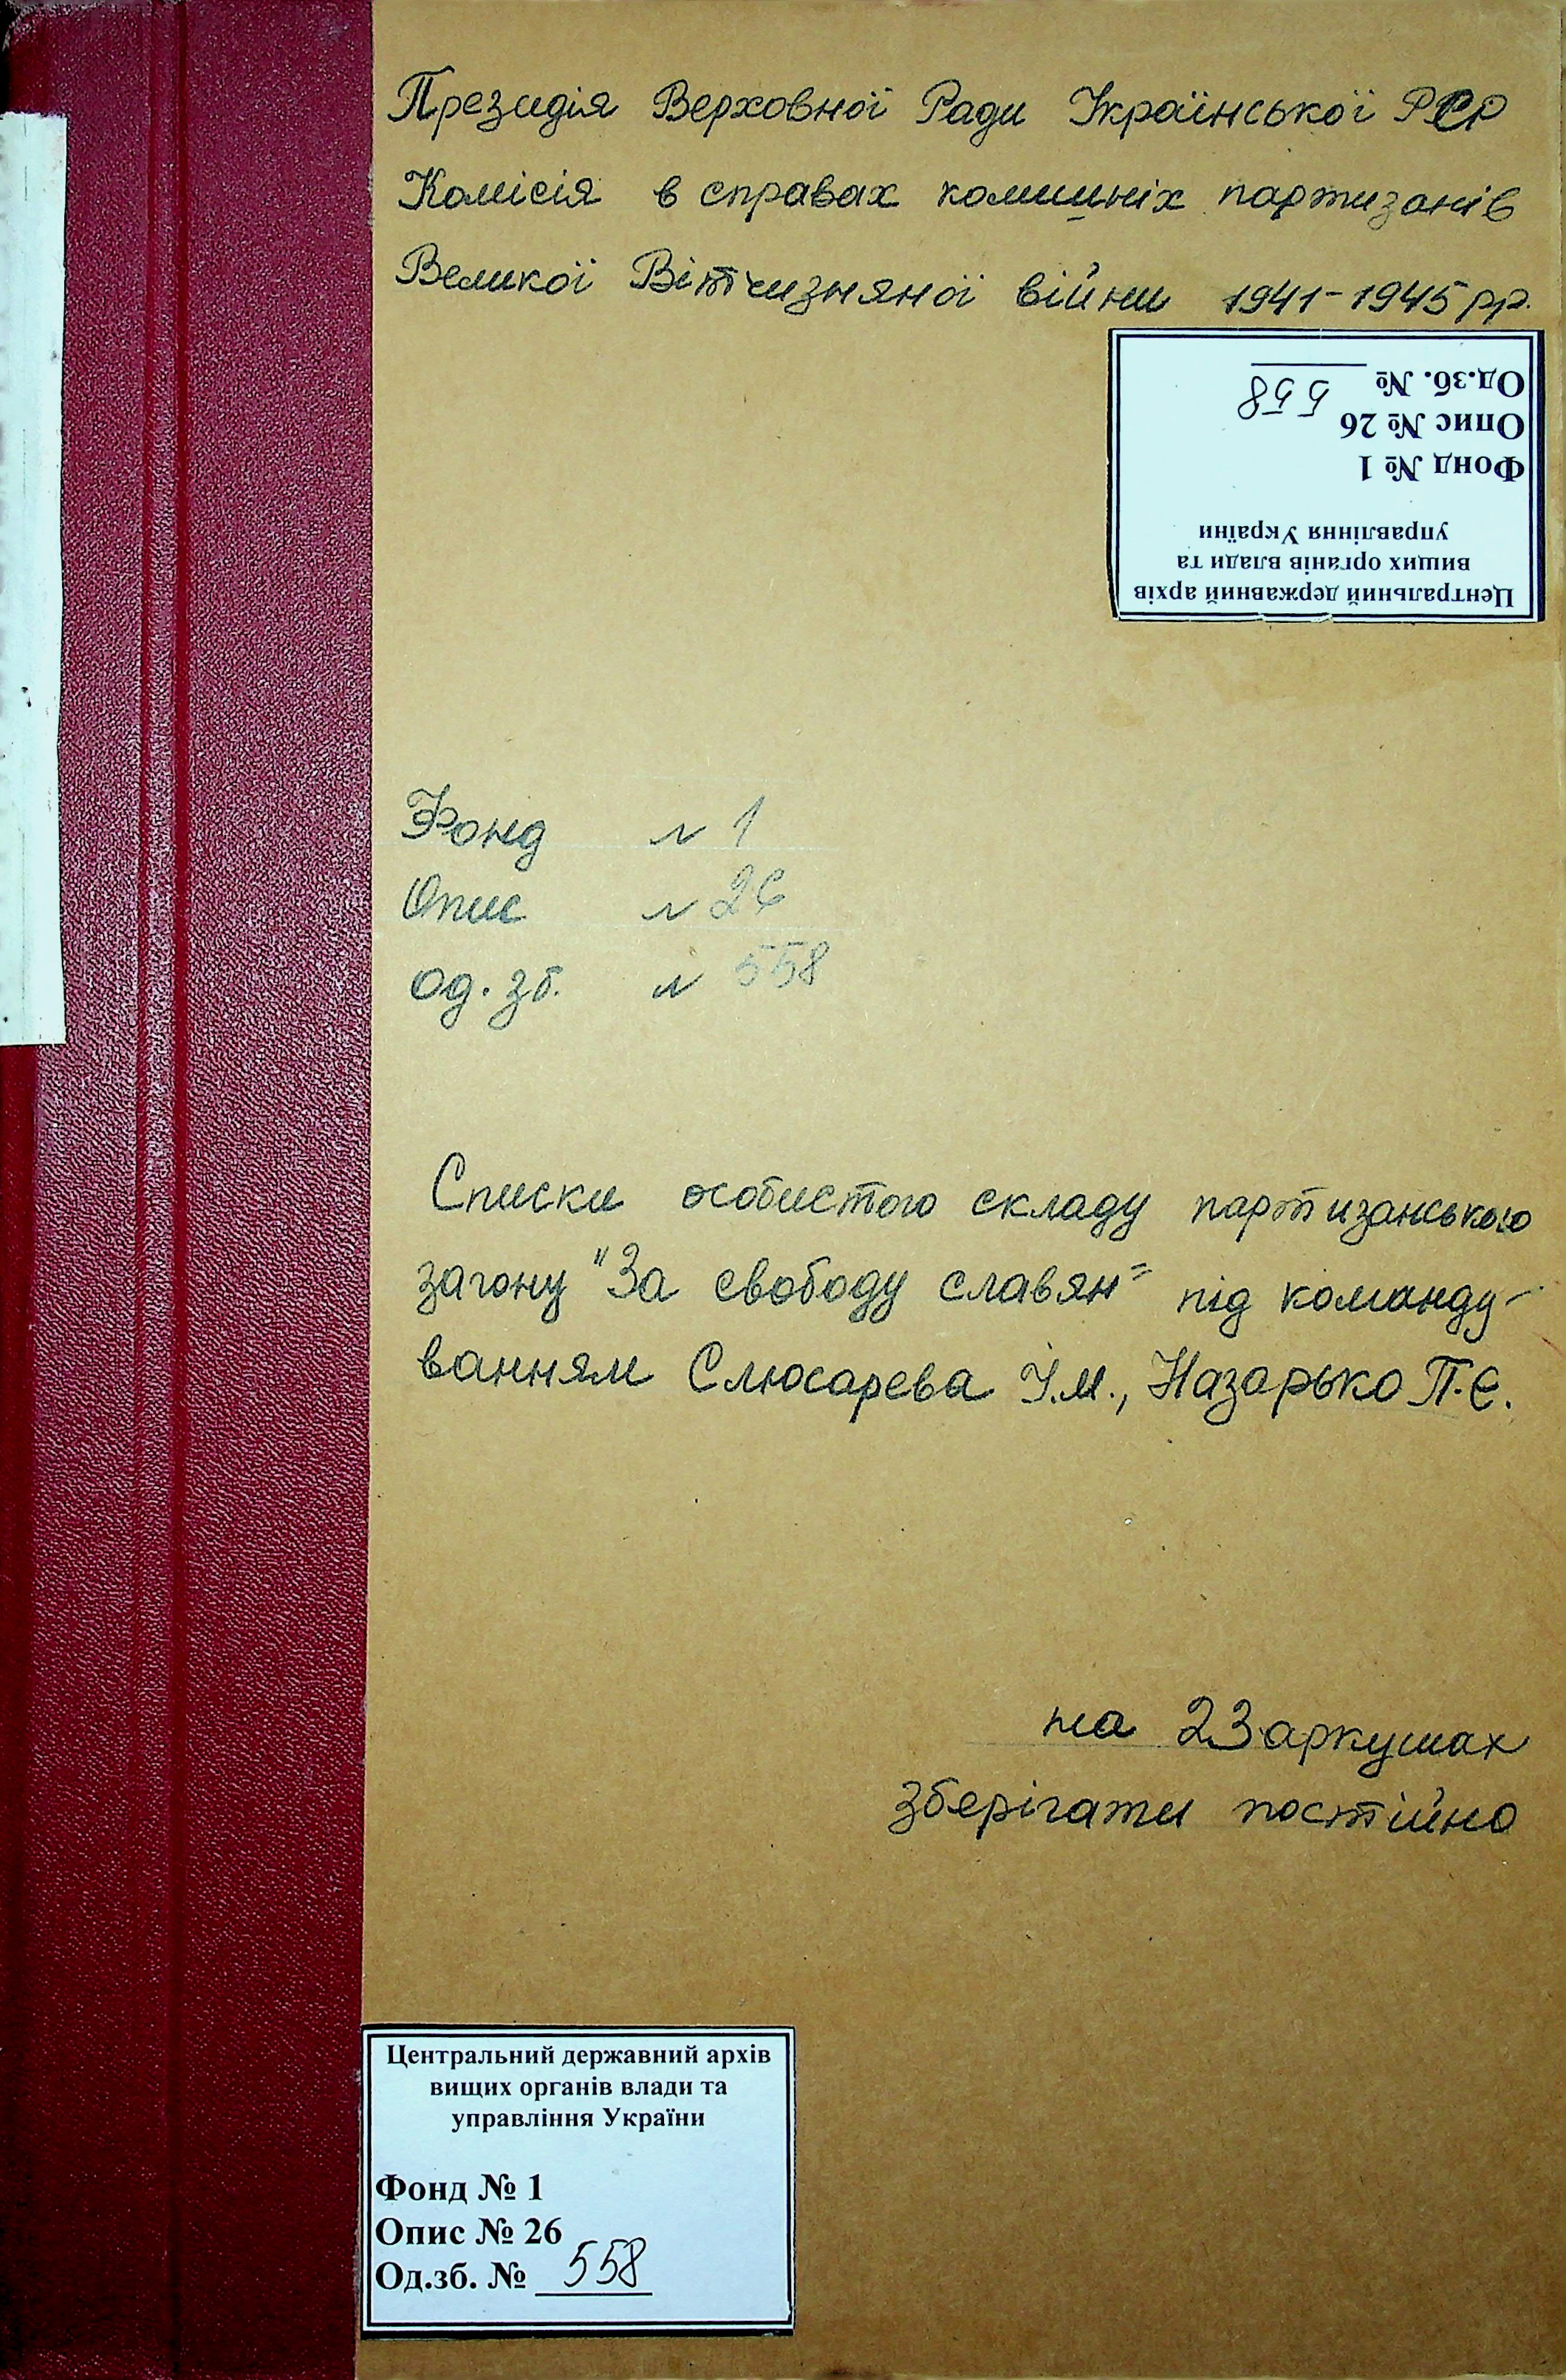 Президія Верховної Ради Української РСР
Комісія в справах колишніх партизанів
Великої Вітчизняної війни 1941-1945 рр.
Центральний державний архів
вищих органів влади та
управління України
Фонд № 1
Опис № 26
Од.зб. № 558
Фонд № 1
Опис № 26
Од. зб. № 558
Списки особистого складу партизанського
загону "За свободу славян" під команду-
ванням Слюсарева І.М., Назарько П.Є.
на 23 аркушах
зберігати постійно
Центральний державний архів
вищих органів влади та
управління України
Фонд № 1
Опис № 26
Од.зб. № 558